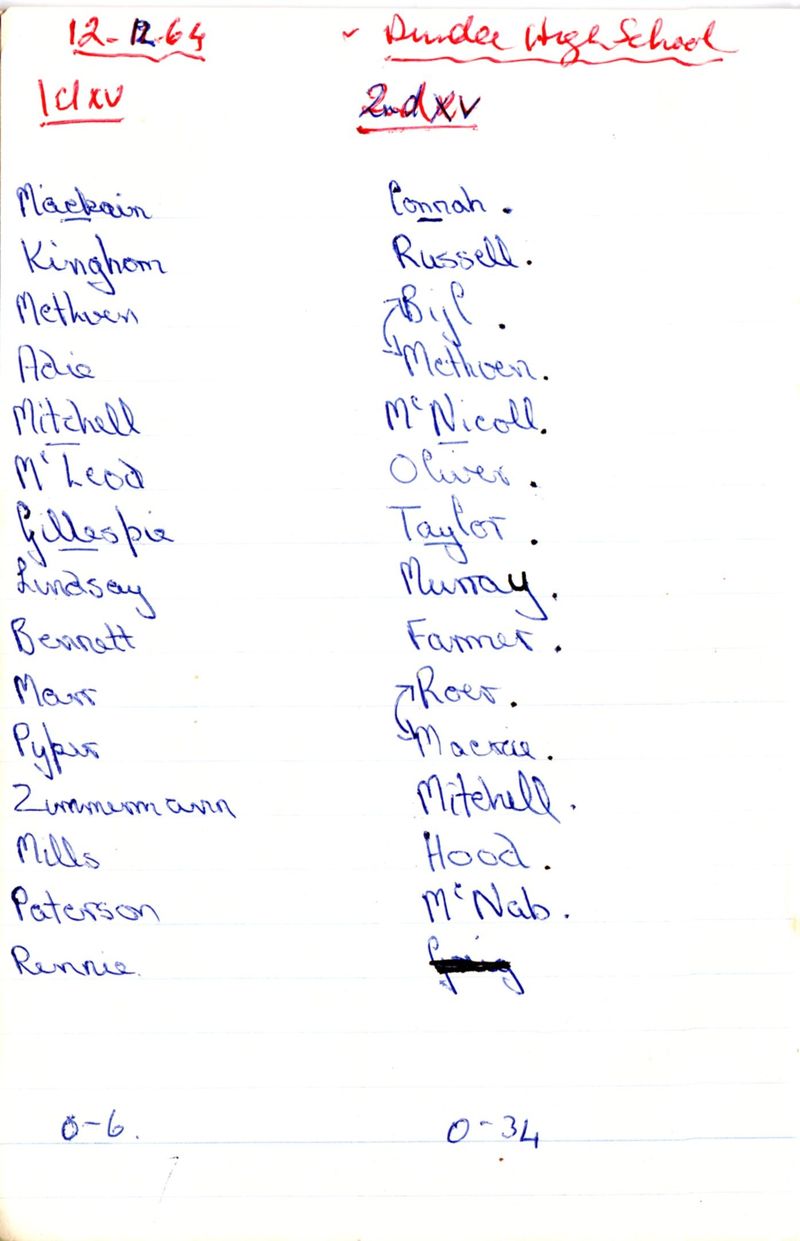 12-12-64 v Dundee High School
1st XV 2nd XV
Mackain Connah.
Kinghom Russell.
Methven Bijl.
Adie Methven.
Mitchell McNicoll.
McLeod Oliver.
Gillespie Taylor.
Lindsay Murray.
Bennett Farmer.
Marr Roer.
Pyper Macrae.
Zimmermann Mitchell.
Mills Hood.
Paterson McNab.
Rennie.
0-6. 0-34